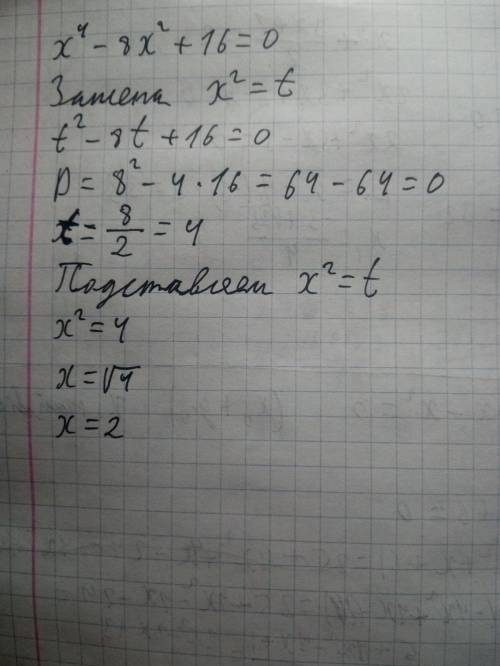 x⁴ - 8x² + 16 = 0
Замена x² = t
t² - 8t + 16 = 0
D = 8² - 4 · 16 = 64 - 64 = 0
t = 8/2 = 4
Подставляем x² = t
x² = 4
x = √4
x = 2